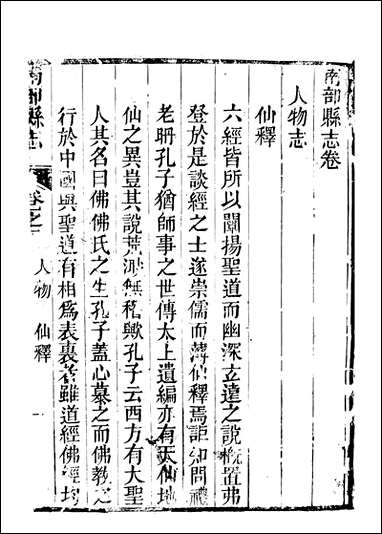 南部縣志卷
人物志
仙釋
六經皆所以闡揚聖道而幽深立遠之說概置弗
登於是談經之士遂崇儒而薄仙釋焉詎知問禮
老聃孔子猶師事之世傳太上遺編亦有天仙地
仙之異豈其說荒渺無稽歟孔子云西方有大聖
人其名曰佛佛氏之生孔子蓋心慕之而佛教之
行於中國與聖道有相為表裏者雖道經佛經均
南部縣志
卷之
人物 仙釋
一